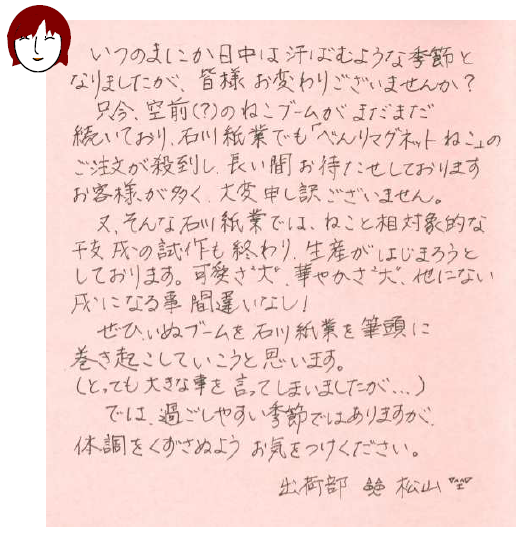 いつのまにか日中は汗ばむような季節と
なりましたが、皆様お変わりございませんか?
只今、空前(?)のねこブームがまだまだ
続いており、石川紙業でも「べんりマグネットねこ」の
ご注文が殺到し、長い間お待たせしております
お客様が多く、大変申し訳ございません。
又、そんな石川紙業では、ねこと相対象的な
干支戌の試作も終わり、生産がはじまろうと
しております。可愛さ"大"、華やかさ"大"、他にない
戌になる事間違いなし!
ぜひ、いぬブームを石川紙業を筆頭に
巻き起こしていこうと思います。
(とっても大きな事を言ってしまいましたが...)
では、過ごしやすい季節ではありますが、
体調をくずさぬようお気をつけください。
出荷部 松山